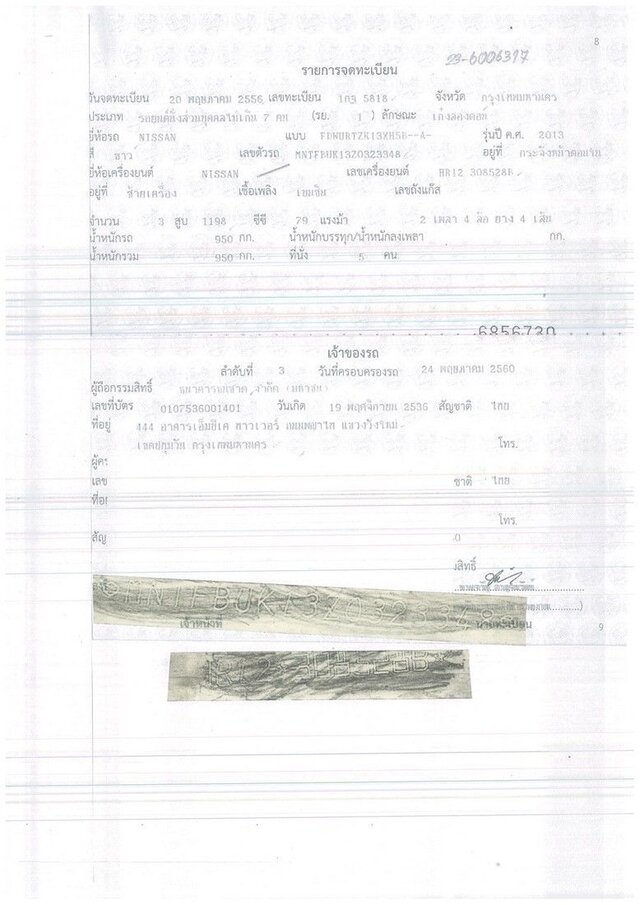 8
23-6006317
รายการจดทะเบียน
วันจดทะเบียน 20 พฤษภาคม 2556 เลขทะเบียน 1กฐ 5818 จังหวัด กรุงเทพมหานคร
ประเภท รถยนต์นั่งส่วนบุคคลไม่เกิน 7 คน (รย. 1 ) ลักษณะ เก๋งสองตอน
ยี่ห้อรถ NISSAN แบบ FDNURTZK13XH5B--A- รุ่นปี ค.ศ. 2013
สี ขาว เลขตัวรถ MNTFBUK13Z0323348 อยู่ที่
ยี่ห้อเครื่องยนต์ NISSAN เลขเครื่องยนต์ HR12 308528B
อยู่ที่ ซ้ายเครื่อง เชื้อเพลิง เบนซิน เลขถังแก๊ส
จำนวน 3 สูบ 1198 ซีซี 79 แรงม้า 2 เพลา 4 ล้อ ยาง 4 เส้น
น้ำหนักรถ 950 กก. น้ำหนักบรรทุก/น้ำหนักลงเพลา กก.
น้ำหนักรวม 950 กก. ที่นั่ง 5 คน
6856730
เจ้าของรถ
ลำดับที่ 3 วันที่ครอบครองรถ 24 พฤษภาคม 2560
ผู้ถือกรรมสิทธิ์ ธนาคารธนชาต จำกัด (มหาชน)
เลขที่บัตร 0107536001401 วันเกิด 19 พฤศจิกายน 2536 สัญชาติ ไทย
ที่อยู่ 444 อาคารเอ็มบีเค ทาวเวอร์ ถนนพญาไท แขวงวังใหม่
เขตปทุมวัน กรุงเทพมหานคร โทร.
ผู้คร
เลข ชาติ ไทย
ที่อย
โทร.
สัญ
สิทธิ์
MNTFBUK13Z0323348
เจ้าหน้าที่ นายทะเบียน
9